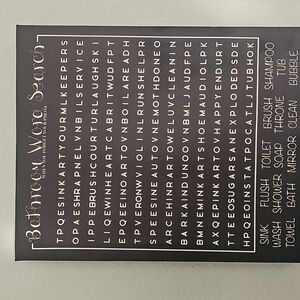 Bathroom Word Search
WHEN YOU FORGET YOUR PHONE
TPQESINKARTYOURMLKEEPERS
OPAESHRAPNELVNBILSERVICE
IPPEBRUSHCOURTLAUGHSKI
LIQEWINHEARTCABRITWUDFPT
EPQEINOARTOVNBOILAREADH
TPVERONWVIOLINLRUNSHELPR
SPESEINEAUTOVNEMOTHDONEO
ARCEHINRARTOWELUVCLEANIN
BARKAINDUNOOVNBMLJAUDFPE
BMNEMINKARTSHOEMAUDIOLPK
AXQEPINKARTOVHAPPYENDURT
TTEOSUGARSANEXPLODEDSDE
HPQEOINSTATPOCATLJTUBHOK
SINK FLUSH TOILET BRUSH SHAMPOO
WASH SHOWER SOAP THRONE TUB
TOWEL BATH MIRROR CLEAN BUBBLE